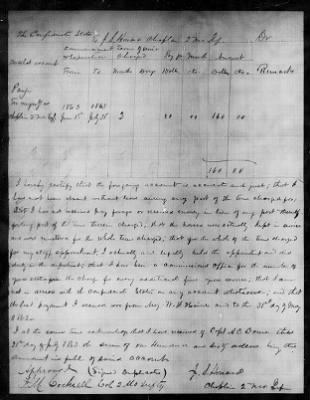 The Confederate States To J S Howard Chaplin 2 Mo Inf Dr
Commencement
Expiration Charged Pay pr Month Amount
On what account
From To Months Days Dolls Cts Dolls Cts Remarks
Pay
For myself as 1863 1863
Chaplin 2 Mo Inf July 31 2
160 00
I hereby certify that the foregoing account is accurate and just; that I
have not been absent without leave during any part of the time charged for;
that I have not received pay forage or received money in lieu of any part thereof
for any part of the time therein charged; that the horses were actually kept in service
and were mustered for the whole time charged; that for the whole of the time charged
for my staff appointment I actually and legally held the appointment and did
duty in the department; that I have been a commissioned officer for the number of
years stated in the charge for every additional five years service; that I am
not in arrears with the Confederate States on any account whatsoever; and that
the last payment I received was from Maj. and to the 31st day of May
1863.
I at the same time acknowledge that I have received of Capt this
31st day of July 1863 the sum of one hundred and sixty dollars being the
amount in full of said account.
Approved (Signed Duplicates)
F. M. Cockrell Col 2 Mo Infty J. S. Howard
Chaplin 2 Mo Inf